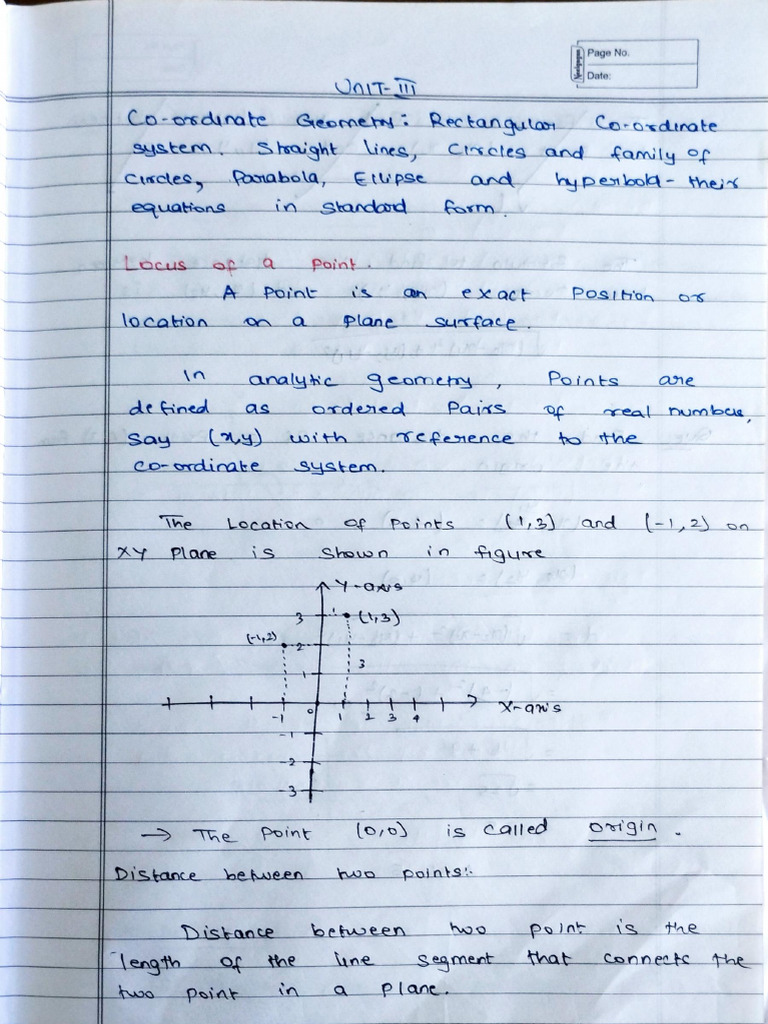 Page No.
Date:
UNIT-III
Co-ordinate Geometry: Rectangular Co-ordinate
system. Straight lines, circles and family of
circles, Parabola, Ellipse and hyperbola - their
equations in standard form.
Locus of a point.
A Point is an exact position or
location on a plane surface.
In analytic geometry, Points are
defined as ordered Pairs of real number,
say (x,y) with reference to the
co-ordinate system.
The Location of Points (1,3) and (-1,2) on
XY Plane is shown in figure
Y-axis
3 1 (1,3)
(-1,2) 2
3
1
-1 0 1 2 3 4 X-axis
-1
-2
-3
→ The Point (0,0) is called origin.
Distance between two points:-
Distance between two point is the
length of the line segment that connects the
two point in a plane.